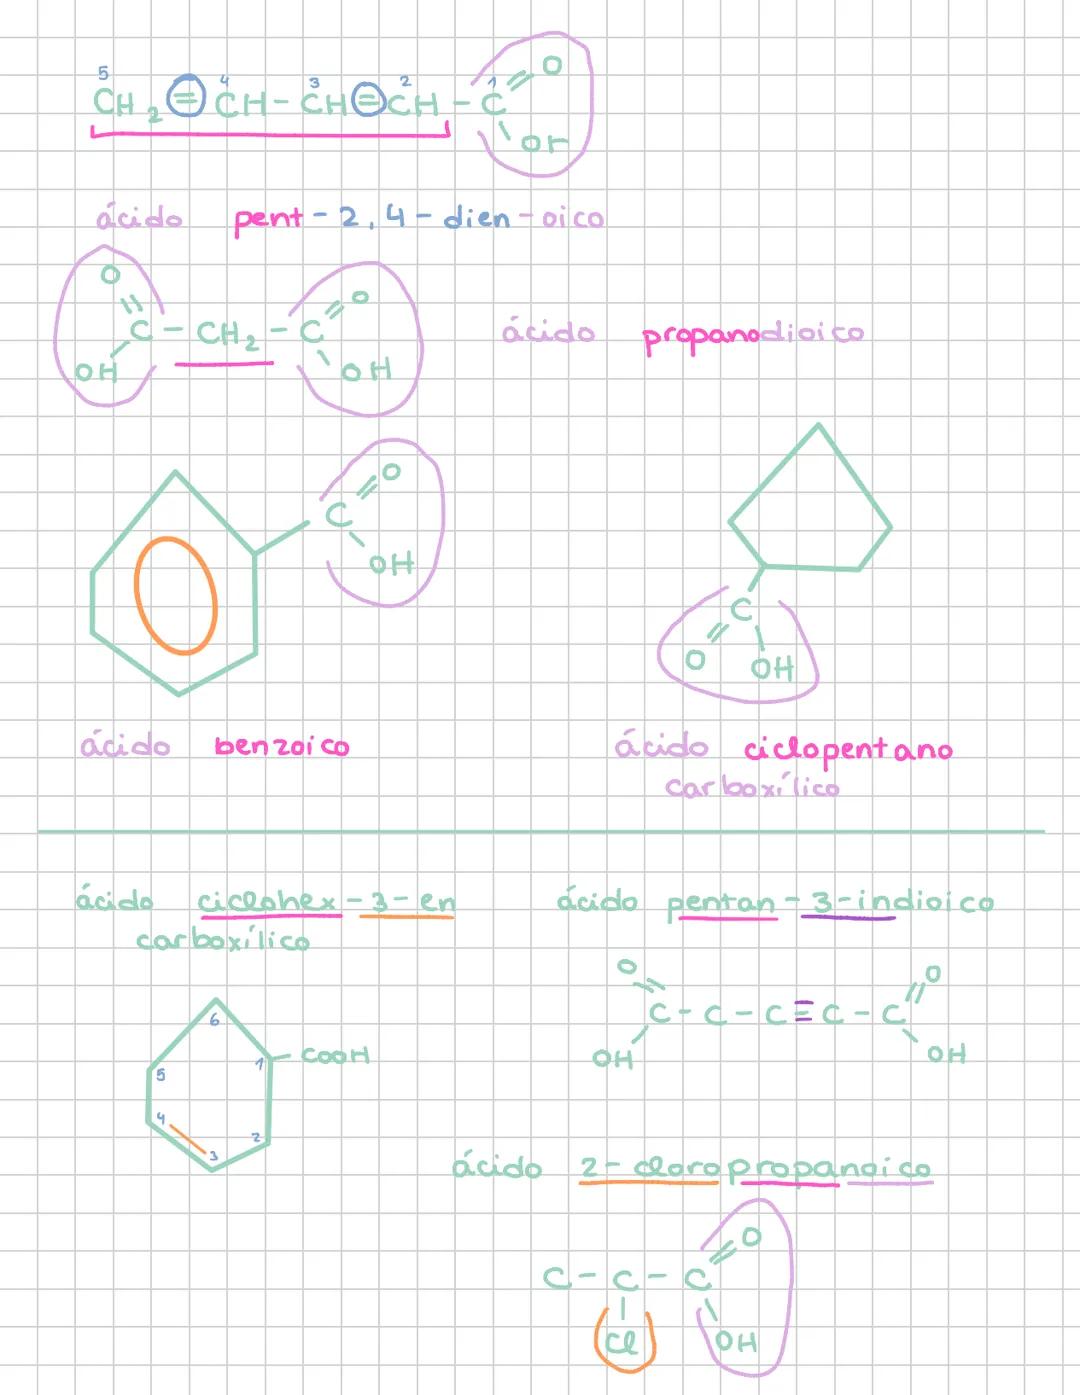 5 4 3 2 1
CH₂ = CH - CH = CH - C = O
Or
ácido pent - 2, 4 - dien - oico
O O
C - CH₂ - C
OH OH
ácido propanodioico
O
C
OH
C
O OH
ácido benzoico
ácido ciclopentano
carboxílico
ácido ciclohex - 3 - en
carboxílico
6
1 - COOH
5
4
2
3
ácido pentan - 3 - indioico
O O
C - C - C ≡ C - C
OH OH
ácido 2 - cloropropanoico
O
C - C - C
Cl OH